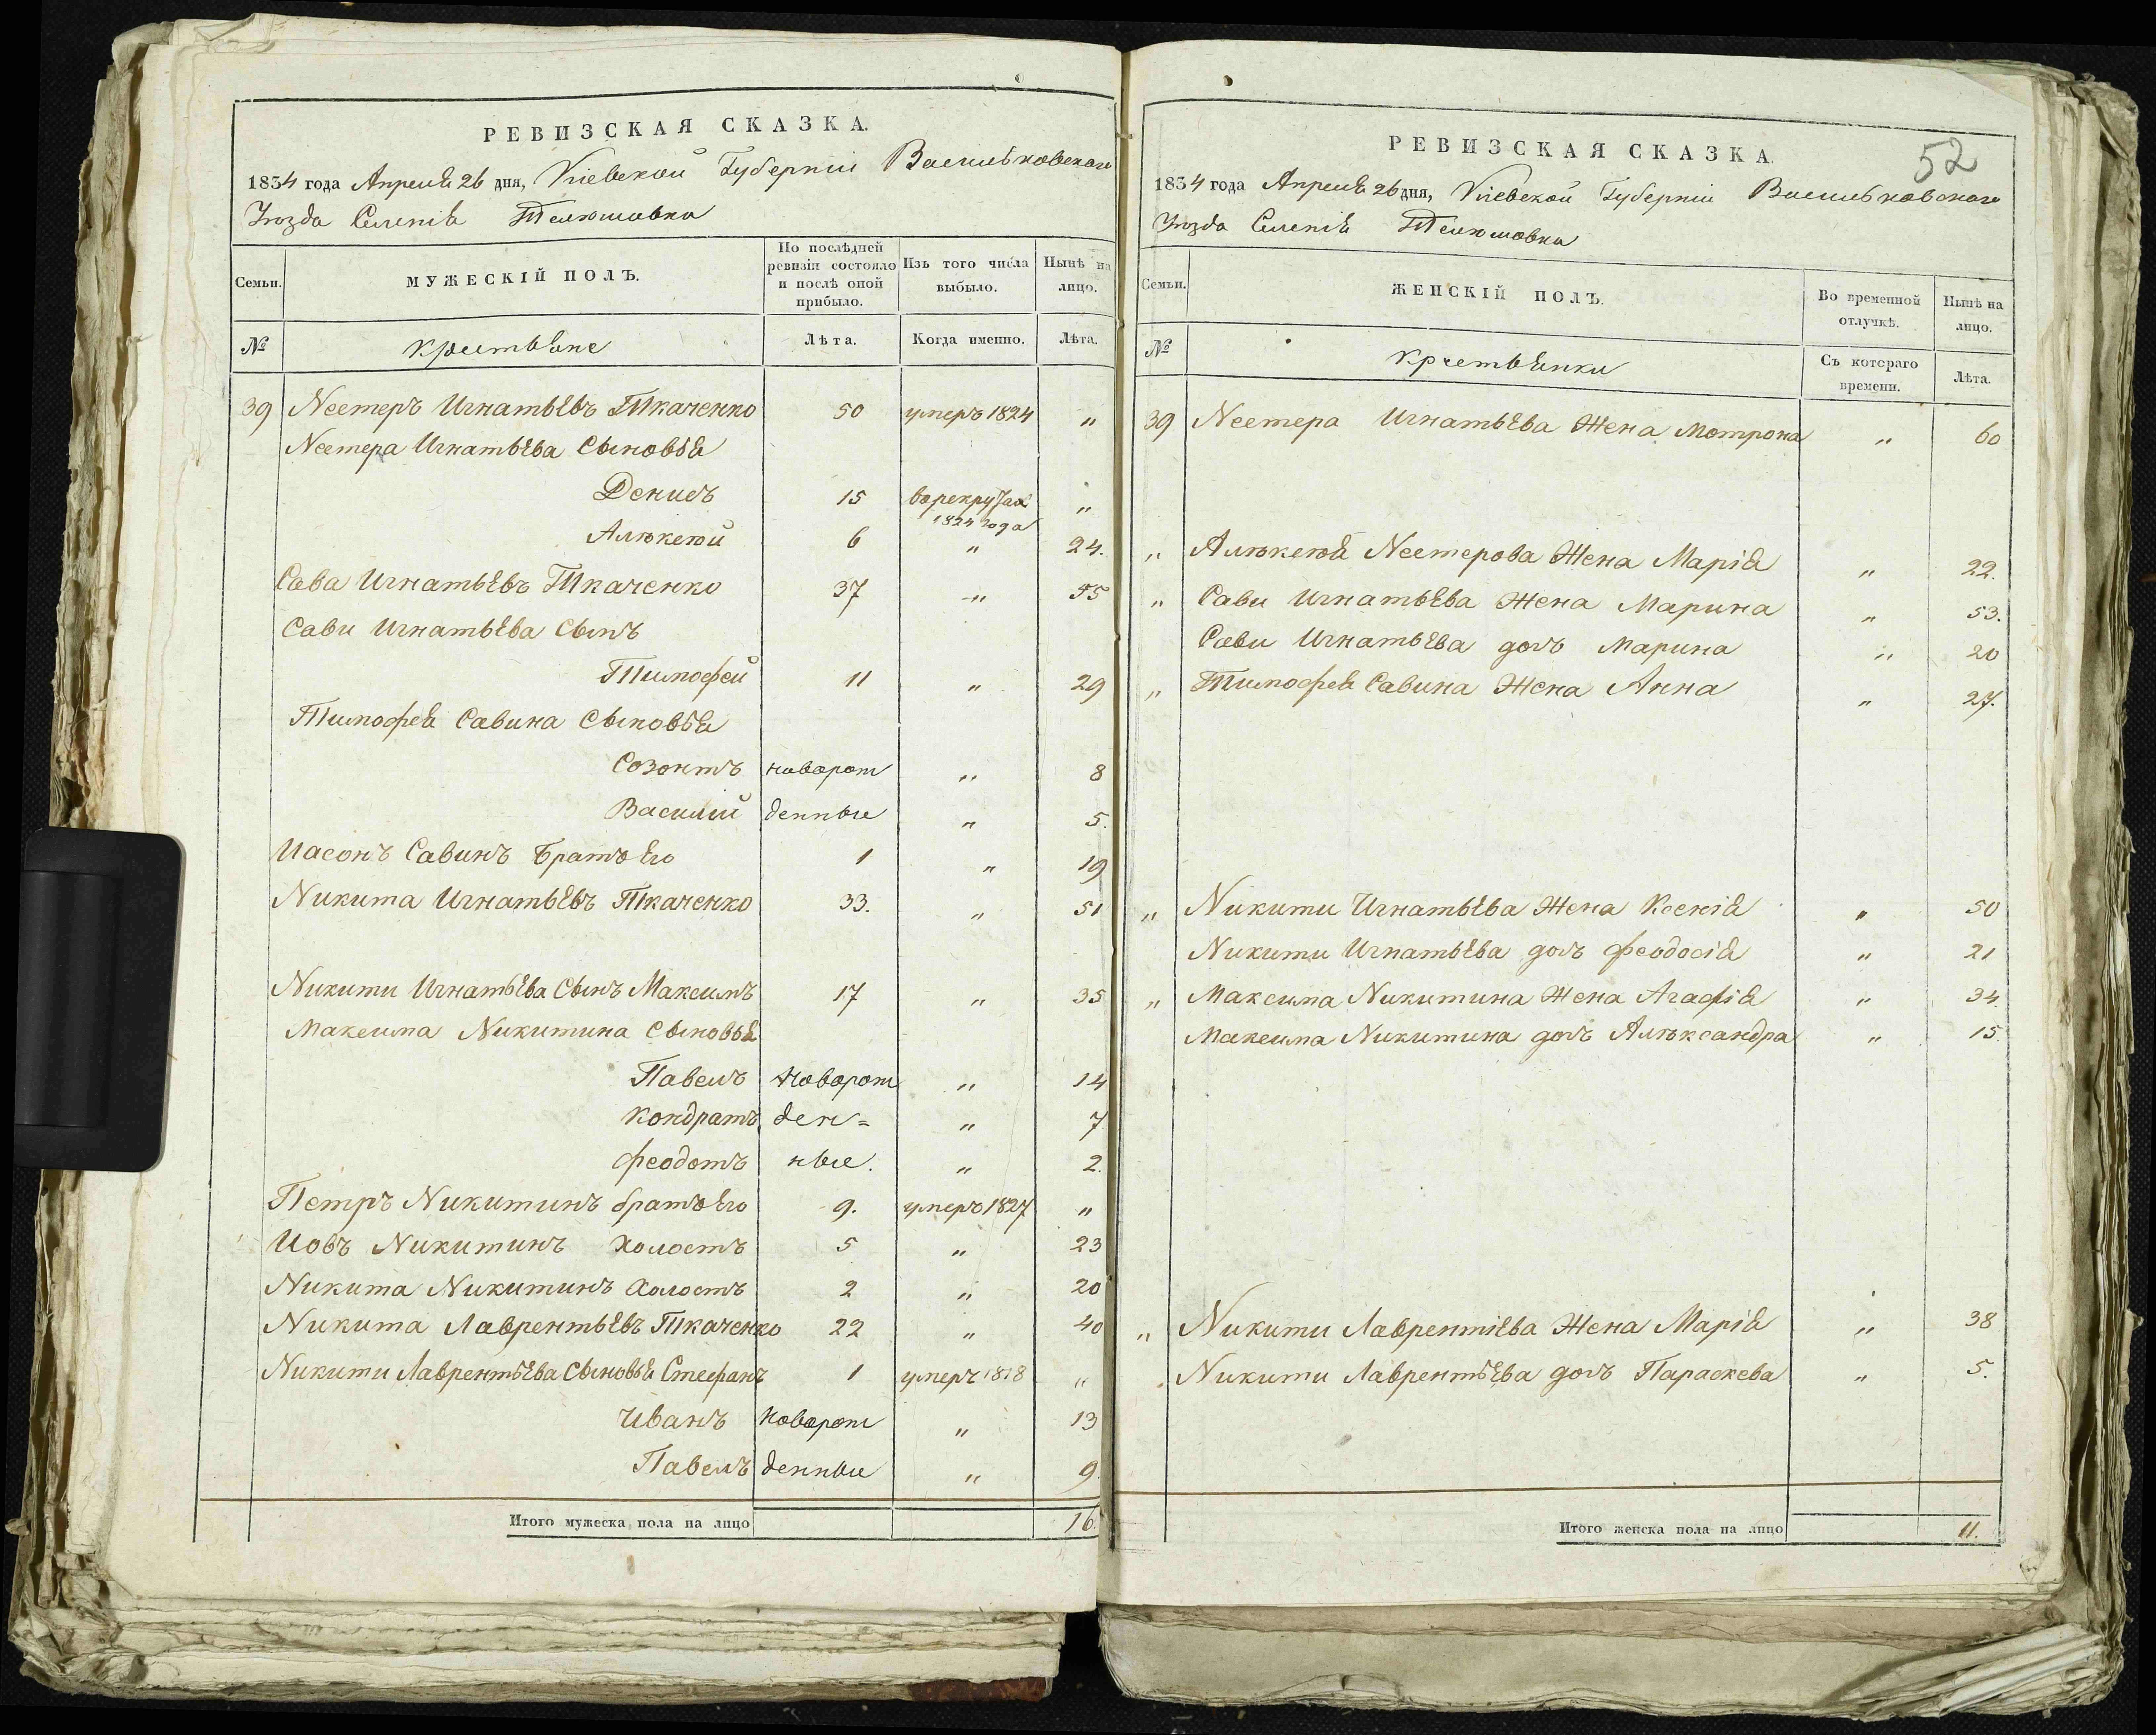 РЕВИЗСКАЯ СКАЗКА.
1834 года Апреля 26 дня, Кіевской Губерніи Васильковскаго
Уѣзда Селенія Телешовки
Семьи.
МУЖЕСКІЙ ПОЛЪ.
По послѣдней ревизіи состояло и послѣ оной прибыло.
Изъ того числа выбыло.
Нынѣ на лицо.
№
Крестьяне
Лѣта.
Когда именно.
Лѣта.
39 Нестеръ Игнатьевъ Ткаченко 50 умеръ 1824 "
Нестера Игнатьева Сыновья
Денисъ 15 в рекрутах 1824 года "
Алѣксѣй 6 " 24.
Сава Игнатьевъ Ткаченко 37 " 55
Сави Игнатьева Сынъ
Тимофей 11 " 29
Тимофея Савина Сыновья
Созонтъ новорож " 8
Василий денные " 5.
Иасонъ Савинъ Братъ Его 1 " 19
Никита Игнатьевъ Ткаченко 33. " 51
Никити Игнатьева Сынъ Максимъ 17 " 35
Максима Никитина Сыновья
Павелъ Новорож " 14
Кондратъ ден= " 7
Феодотъ ные. " 2.
Петръ Никитинъ братъ Его 9. умеръ 1827 "
Иовъ Никитинъ Холостъ 5 " 23
Никита Никитинъ Холостъ 2 " 20
Никита Лаврентьевъ Ткаченко 22 " 40
Никити Лаврентьева Сыновья Стефанъ 1 умеръ 1818 "
Иванъ Новорож " 13
Павелъ денные " 9.
Итого мужеска пола на лицо 16.
52
РЕВИЗСКАЯ СКАЗКА.
1834 года Апреля 26 дня, Кіевской Губерніи Васильковскаго
Уѣзда Селенія Телешовки
Семьи.
ЖЕНСКІЙ ПОЛЪ.
Во временной отлучкѣ.
Нынѣ на лицо.
№
Крестьянки
Съ котораго времени.
Лѣта.
39 Нестера Игнатьева Жена Мотрона " 60
" Алѣксѣя Нестерова Жена Марія " 22.
" Сави Игнатьева Жена Марина " 53.
Сави Игнатьева дочь Марина " 20
" Тимофея Савина Жена Анна " 27.
" Никити Игнатьева Жена Ксенія " 50
Никити Игнатьева дочь Феодосія " 21
" Максима Никитина Жена Агафія " 34.
Максима Никитина дочь Алѣксандра " 15.
" Никити Лаврентіева Жена Марія " 38
Никити Лаврентьева дочь Параскева " 5.
Итого женска пола на лицо 11.